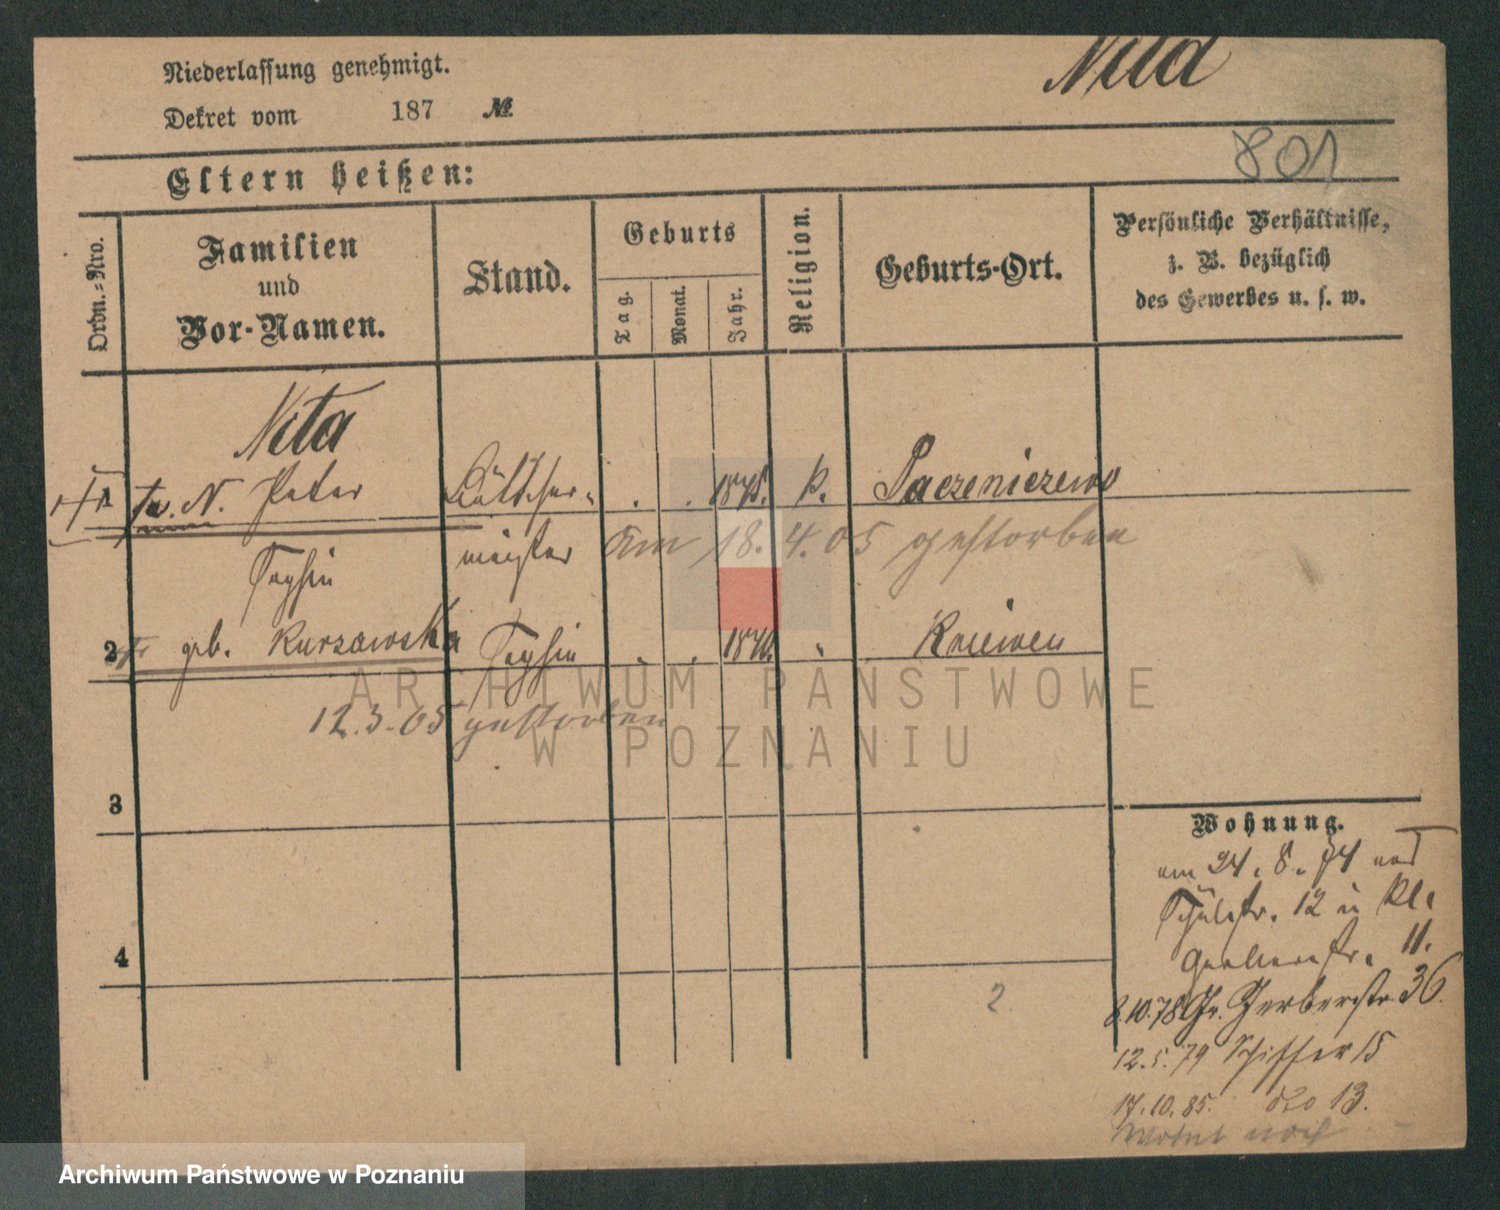 Niederlassung genehmigt.
Nita
Dekret vom 187 №
801
Eltern heißen:
Ordn.-Nro.
Familien
und
Vor-Namen.
Stand.
Geburts
Tag.
Monat.
Jahr.
Religion.
Geburts-Ort.
Persönliche Verhältnisse,
z. B. bezüglich
des Gewerbes u. s. w.
Nita
1 N. Peter Böttcher-
meister
k.
am 18. 4. 05 gestorben
2 geb. Kurzawska
12.3.05 gestorben
3
4
2
Wohnung.
am 24. 8. 74
Schulstr. 12 u Kl.
Gerberstr. 11.
8.10.78 Gr. Gerberstr. 36
12.5.79 Schiffer 15
17.10.85. dto 13.
wohnt noch
ARCHIWUM PAŃSTWOWE
W POZNANIU
Archiwum Państwowe w Poznaniu